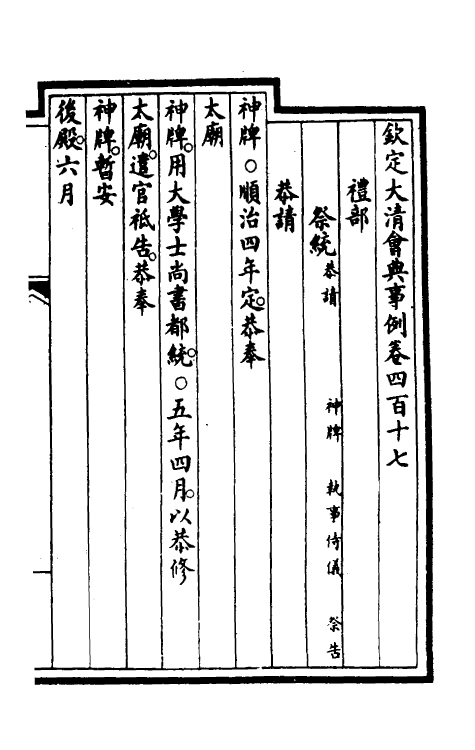 欽定大清會典事例卷四百十七
禮部
祭統恭請 神牌 執事侍儀 祭告
恭請
神牌○順治四年定。恭奉
太廟
神牌。用大學士尚書都統。○五年四月。以恭修
太廟。遣官祗告。恭奉
神牌。暫安
後殿。六月